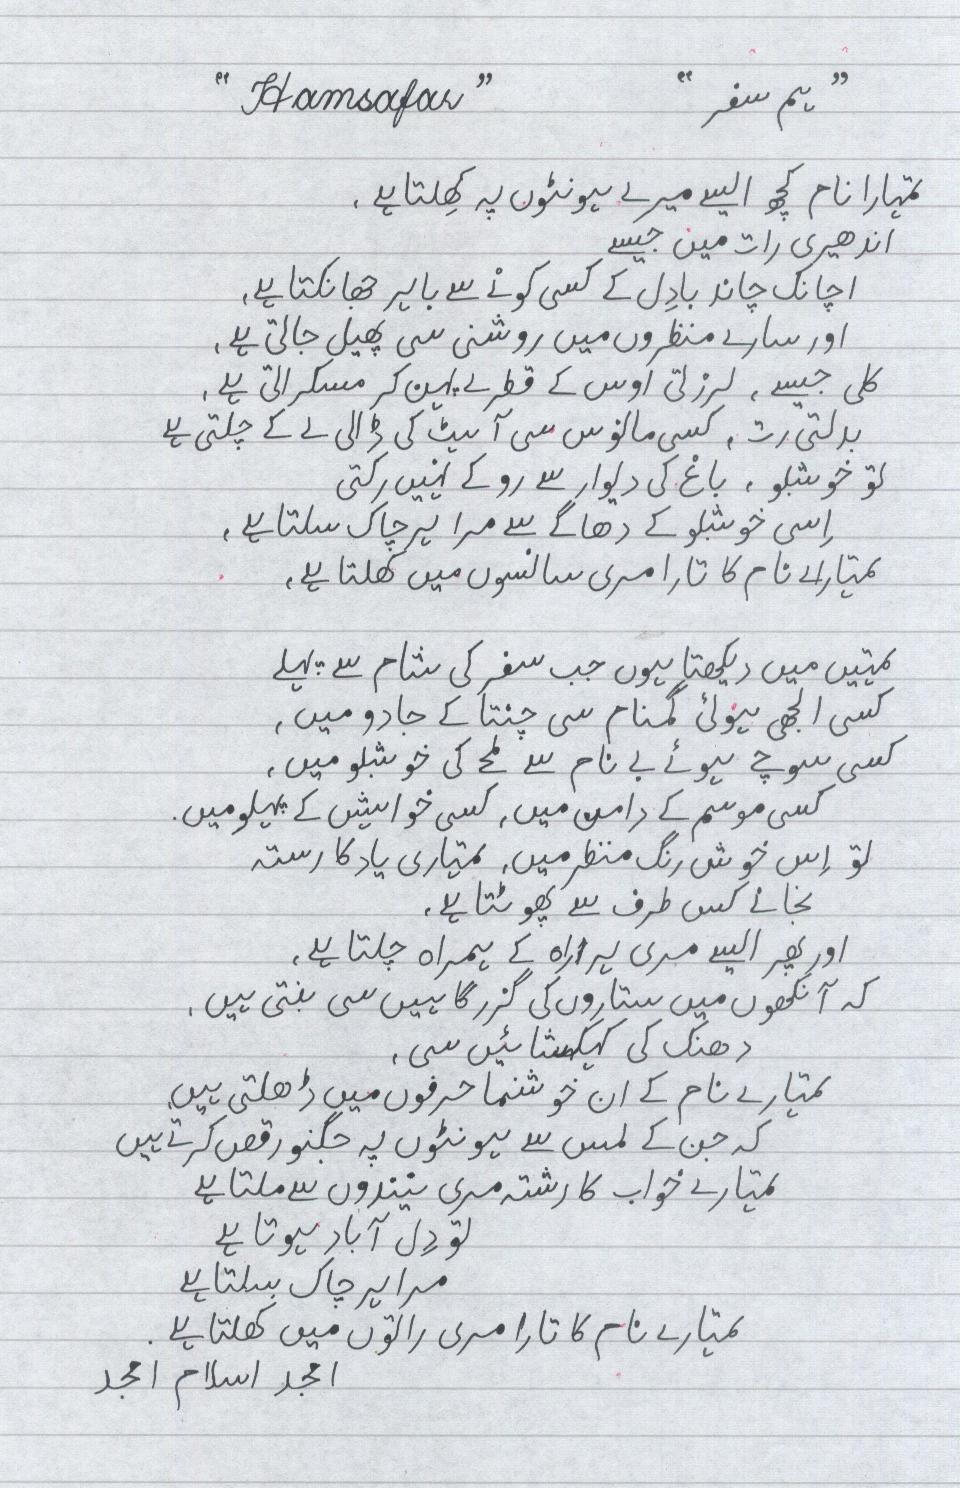 "Hamsafar" "ہم سفر"
تمہارا نام کچھ ایسے میرے ہونٹوں پہ کھِلتا ہے،
اندھیری رات میں جیسے
اچانک چاند بادِل کے کسی کونے سے باہر جھانکتا ہے،
اور سارے منظروں میں روشنی سی پھیل جاتی ہے،
کلی جیسے، لرزتی اوس کے قطرے پہن کر مسکراتی ہے،
بدلتی رت، کسی مانوس سی آہٹ کی ڈالی لے کے چلتی ہے
تو خوشبو، باغ کی دیوار سے روکے نہیں رکتی
اِسی خوشبو کے دھاگے سے مرا ہر چاک سلتا ہے،
تمہارے نام کا تارا مری سانسوں میں کھلتا ہے،
تمہیں میں دیکھتا ہوں جب سفر کی شام سے پہلے
کسی الجھی ہوئی گمنام سی چِنتا کے جادو میں،
کسی سوچے ہوئے بے نام سے لمحے کی خوشبو میں،
کسی موسم کے دامن میں، کسی خواہش کے پہلو میں۔
تو اِس خوش رنگ منظر میں، تمہاری یاد کا رستہ
نجانے کس طرف سے پھوٹتا ہے،
اور پھر ایسے مری ہر راہ کے ہمراہ چلتا ہے،
کہ آنکھوں میں ستاروں کی گزرگاہیں سی بنتی ہیں،
دھنک کی کہکشائیں سی،
تمہارے نام کے ان خوشنما حرفوں میں ڈھلتی ہیں،
کہ جن کے لمس سے ہونٹوں پہ جگنو رقص کرتے ہیں
تمہارے خواب کا رشتہ مری نیندوں سے ملتا ہے
تو دِل آباد ہوتا ہے
مرا ہر چاک سلتا ہے
تمہارے نام کا تارا مری راتوں میں کھلتا ہے۔
امجد اسلام امجد